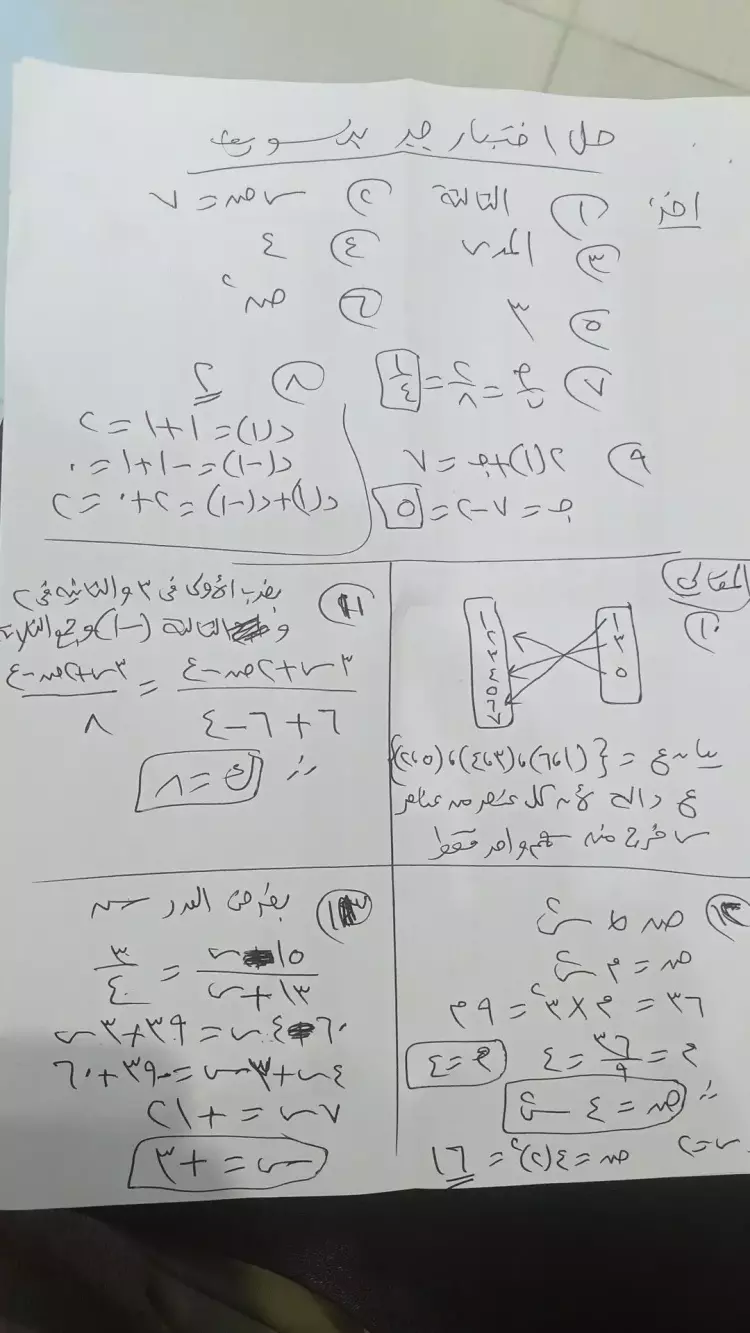 حل اختبار جبر بورسعيد
اختر:
① الثالثة ② س ص = ٧
③ المدى ④ ٤
⑤ ٣ ⑥ ص²
⑦ = = ١/٤ ⑧ ٢
د(١) = ١+١ = ٢
د(-١) = -١+١ = ٠
د(١)+د(-١) = ٢+٠ = ٢
⑨ ٢(١)+جـ = ٧
جـ = ٧-٢ = ٥
المقالي
⑩
١ ٣ ٥
١ ٢ ٣ ٤ ٥ ٦ ٧
بيان ع = {(١،٦)،(٣،٤)،(٥،٢)}
ع دالة لأن كل عنصر من عناصر
س خرج منه سهم واحد فقط
⑪ بضرب الأولى في ٣ والثانية في ٢
و الثالثة (-١) وجمع الثلاثة
٣س+٢ص-ع / ٦+٦-٤ = ٣س+٢ص-ع / ٨
∴ ك = ٨
ص ∝ س²
ص = م س²
٣٦ = م×٣² = ٩م
م = ٣٦/٩ = ٤ م=٤
∴ ص = ٤ س²
س=٢ ص = ٤(٢)² = ١٦
بفرض العدد س
١٥-س / ١٣+س = ٣/٤
٦٠-٤س = ٣٩+٣س
٤س+٣س = -٣٩+٦٠
٧س = +٢١
س = +٣